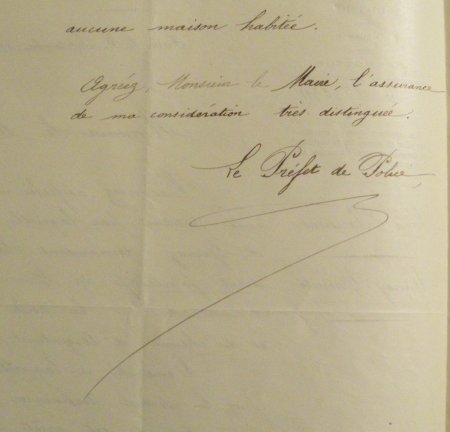 aucune maison habitée.
Agréez, Monsieur le Maire, l'assurance
de ma considération très distinguée.
Le Préfet de Police,